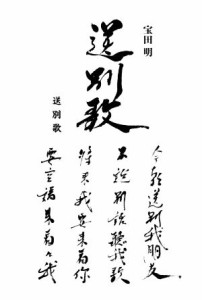 宝田 明
送別歌
送別歌
今送別我朋友
不說別話聽我歌
将来我要来看你
要来看々我